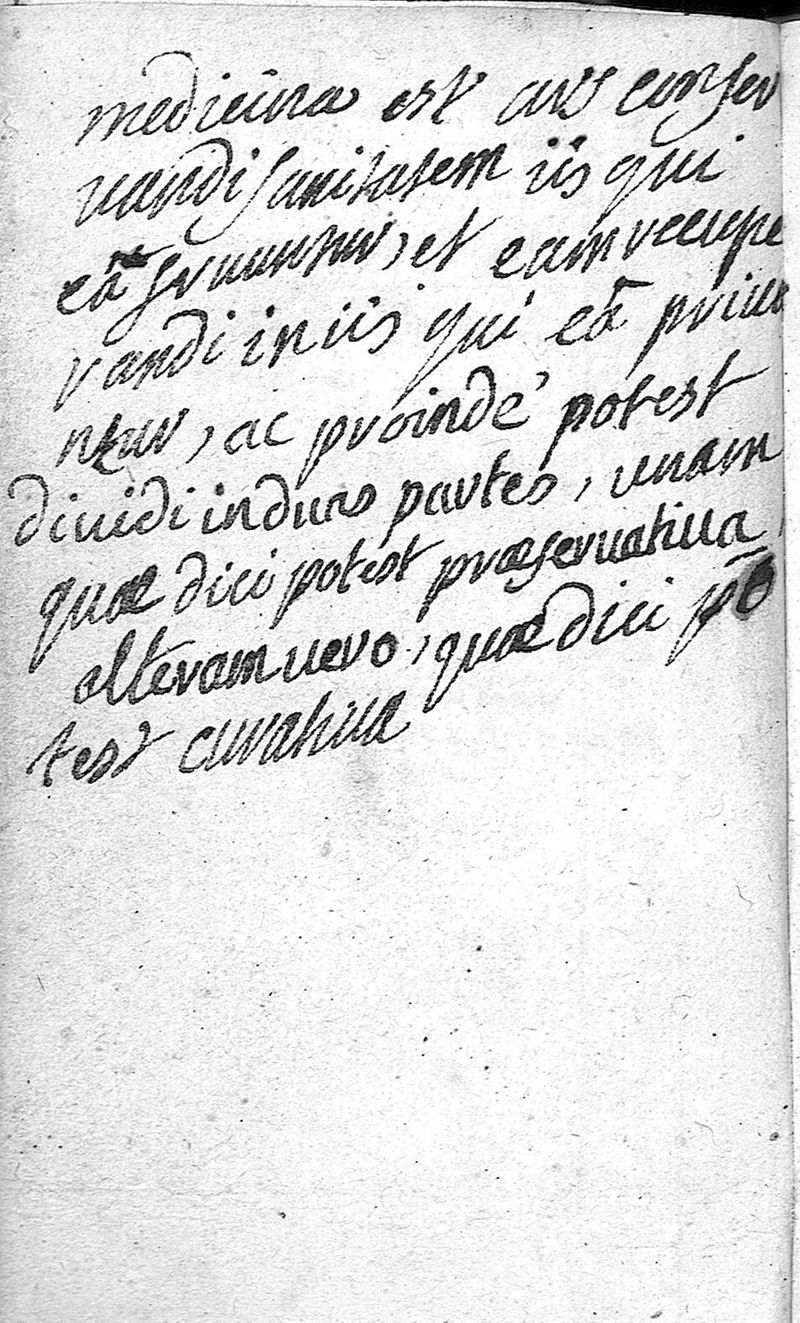 medicina est ars conser
uandi sanitatem iis qui
eâ fruuntur, et eam recupe
randi in iis qui eâ priua
ntur, ac proindé potest
diuidi in duas partes, unam
quæ dici potest præseruatiua,
alteram uero, quæ dici po
test curatiua